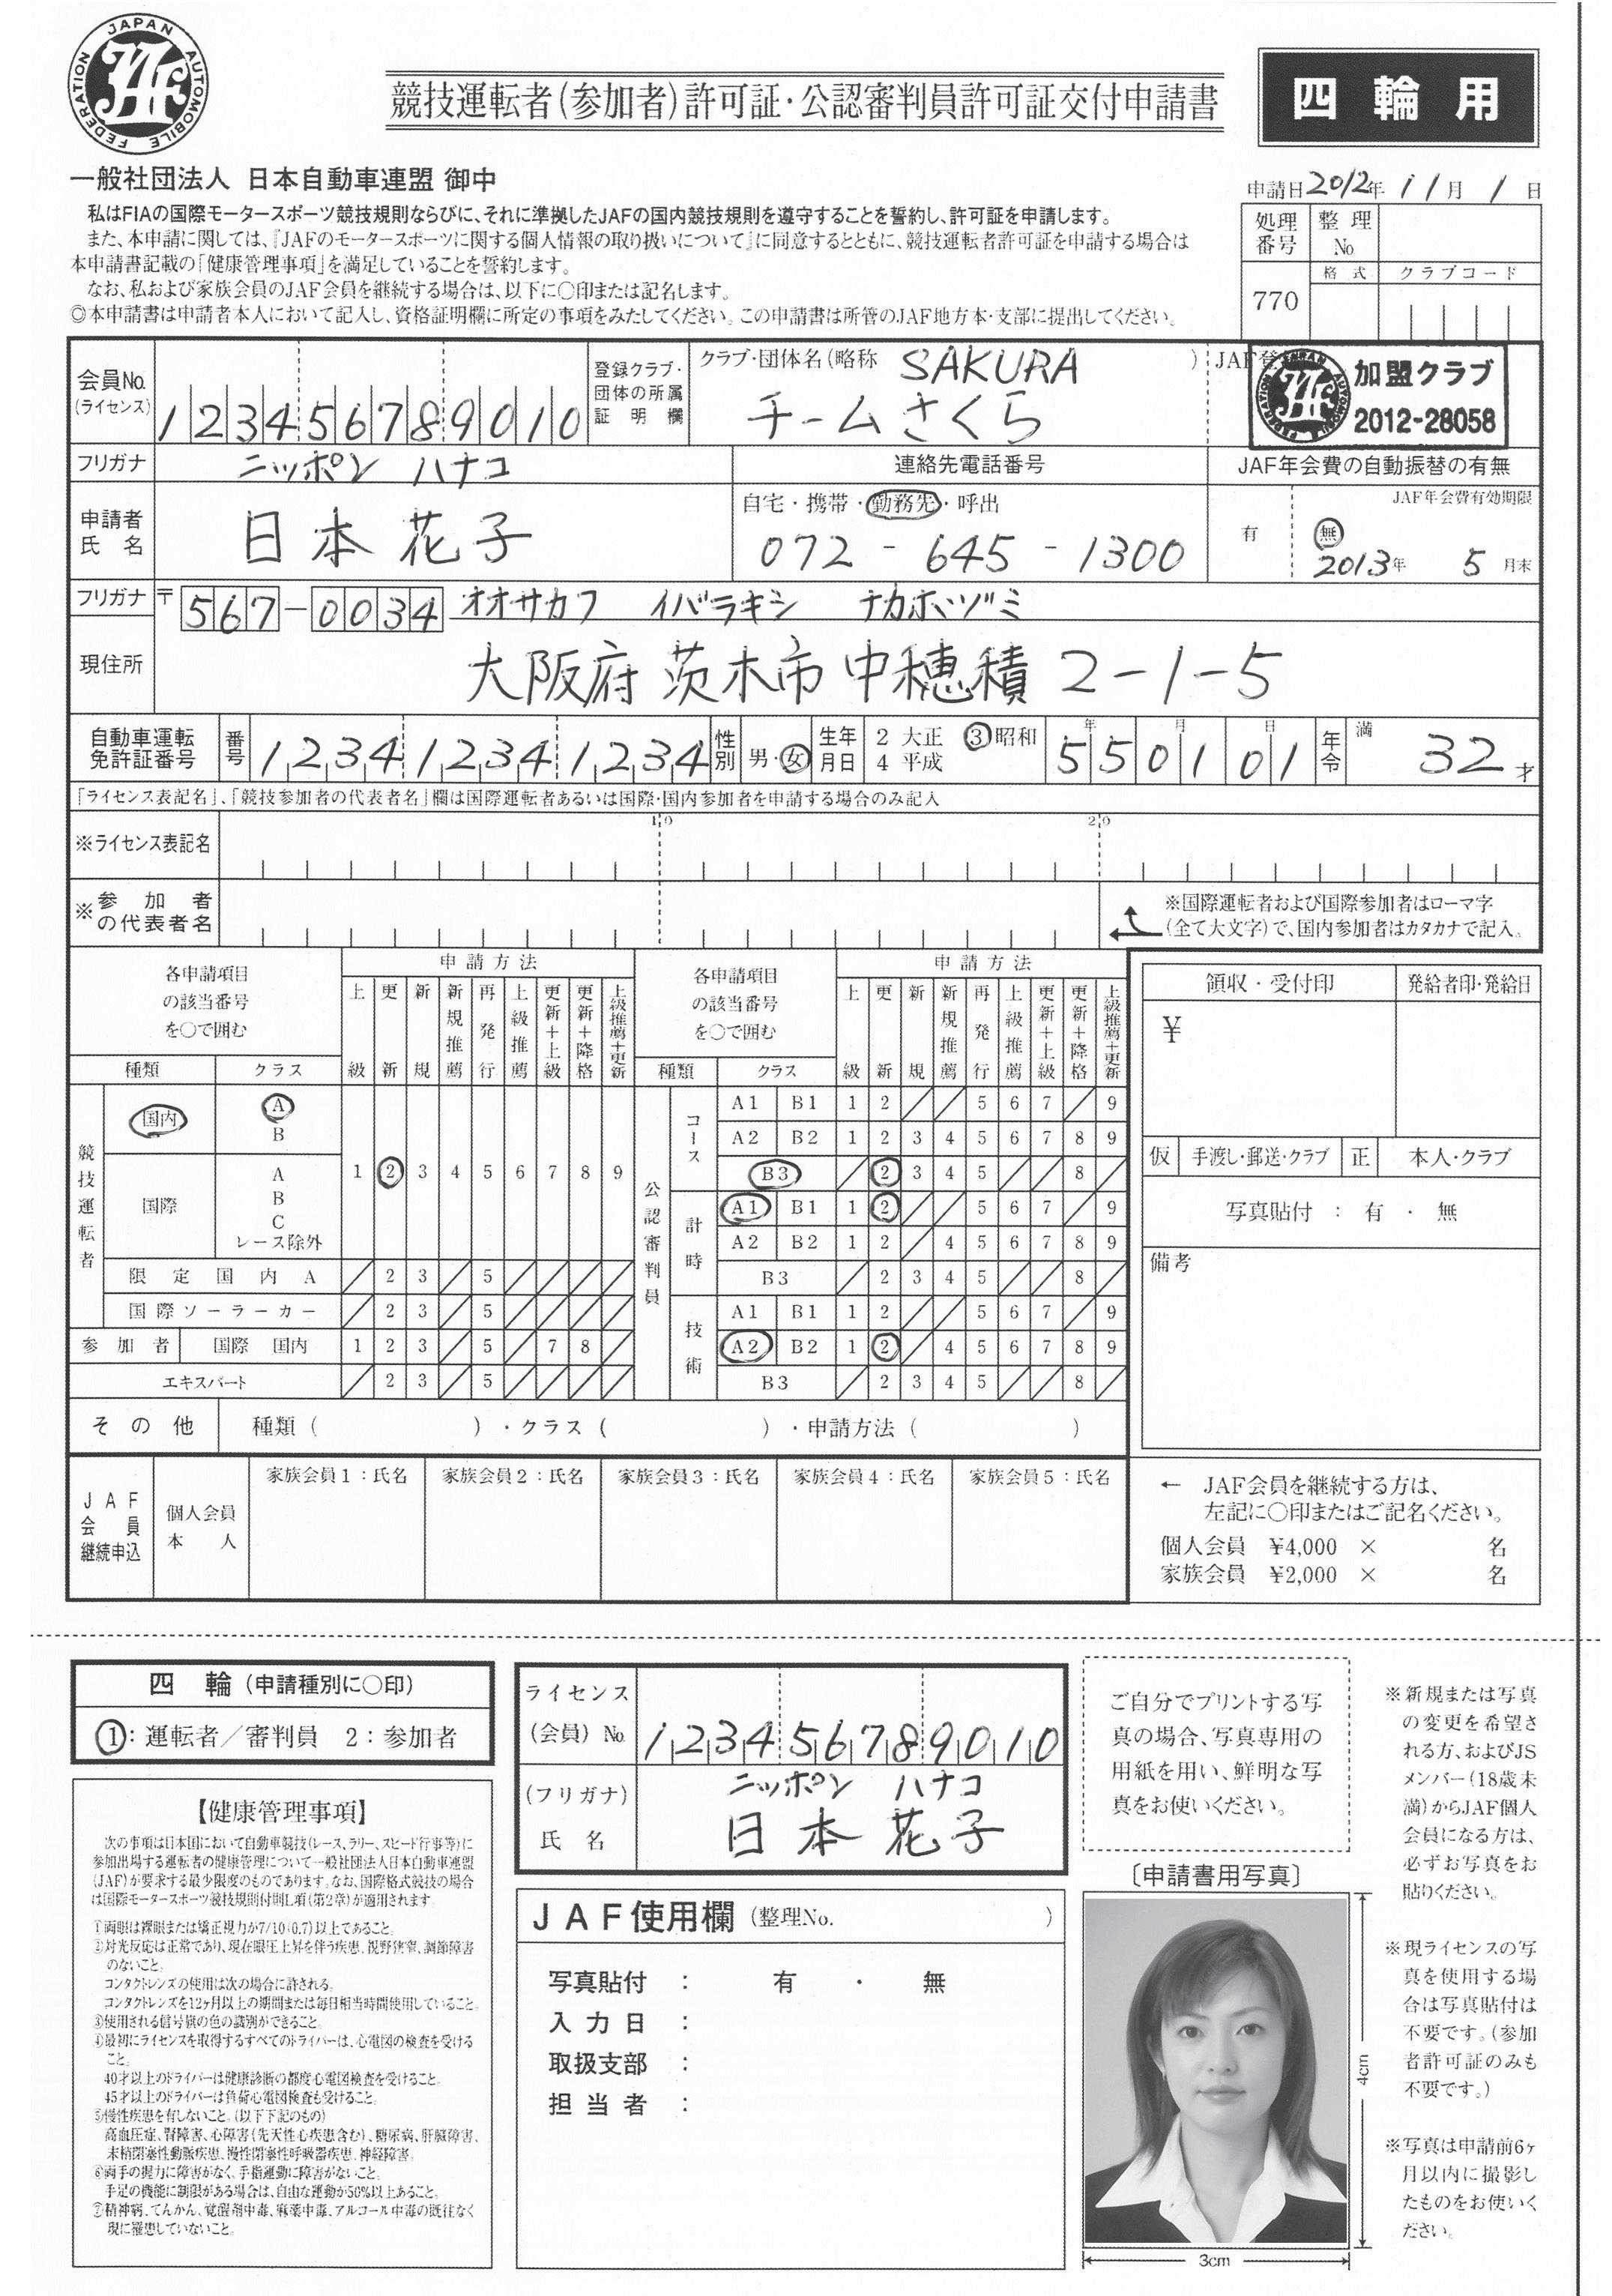 JAPAN AUTOMOBILE FEDERATION
JAF
競技運転者(参加者)許可証・公認審判員許可証交付申請書
四輪用
一般社団法人 日本自動車連盟 御中
申請日 2012年 11月 1日
私はFIAの国際モータースポーツ競技規則ならびに、それに準拠したJAFの国内競技規則を遵守することを誓約し、許可証を申請します。
また、本申請に関しては、『JAFのモータースポーツに関する個人情報の取り扱いについて』に同意するとともに、競技運転者許可証を申請する場合は
本申請書記載の「健康管理事項」を満足していることを誓約します。
なお、私および家族会員のJAF会員を継続する場合は、以下に○印または記名します。
◎本申請書は申請者本人において記入し、資格証明欄に所定の事項をみたしてください。この申請書は所管のJAF地方本・支部に提出してください。
処理番号 整理No
770 格式 クラブコード
会員No.(ライセンス) 123456789010
登録クラブ・団体の所属証明欄
クラブ・団体名(略称 SAKURA )
チームさくら
加盟クラブ
2012-28058
フリガナ ニッポン ハナコ
連絡先電話番号
JAF年会費の自動振替の有無
申請者氏名 日本 花子
自宅・携帯・勤務先・呼出
072-645-1300
JAF年会費有効期限
有 無
2013年 5月末
フリガナ 〒567-0034 オオサカフ イバラキシ ナカホヅミ
現住所 大阪府 茨木市 中穂積 2-1-5
自動車運転免許証番号 番号 123412341234 性別 男・女 生年月日 2 大正 ③昭和 4 平成 55年01月01日 年令 満 32才
「ライセンス表記名」、「競技参加者の代表者名」欄は国際運転者あるいは国際・国内参加者を申請する場合のみ記入
※ライセンス表記名 10 20
※参加者の代表者名
※国際運転者および国際参加者はローマ字
(全て大文字)で、国内参加者はカタカナで記入。
各申請項目の該当番号を○で囲む 申請方法
種類 クラス 上級 更新 新規 新規推薦 再発行 上級推薦 更新+上級 更新+降格 上級推薦+更新
競技運転者
国内 A B
国際 A B C レース除外
1 ② 3 4 5 6 7 8 9
限定国内A 2 3 5
国際ソーラーカー 2 3 5
参加者 国際 国内 1 2 3 5 7 8
エキスパート 2 3 5
各申請項目の該当番号を○で囲む 申請方法
種類 クラス 上級 更新 新規 新規推薦 再発行 上級推薦 更新+上級 更新+降格 上級推薦+更新
公認審判員
コース
A1 B1 1 2 5 6 7 9
A2 B2 1 2 3 4 5 6 7 8 9
B3 ② 3 4 5 8
計時
A1 B1 1 ② 5 6 7 9
A2 B2 1 2 4 5 6 7 8 9
B3 2 3 4 5 8
技術
A1 B1 1 2 5 6 7 9
A2 B2 1 ② 4 5 6 7 8 9
B3 2 3 4 5 8
その他 種類( )・クラス( )・申請方法( )
領収・受付印 発給者印・発給日
¥
仮 手渡し・郵送・クラブ 正 本人・クラブ
写真貼付 : 有 ・ 無
備考
JAF会員継続申込 個人会員本人 家族会員1:氏名 家族会員2:氏名 家族会員3:氏名 家族会員4:氏名 家族会員5:氏名
← JAF会員を継続する方は、
左記に○印またはご記名ください。
個人会員 ¥4,000 × 名
家族会員 ¥2,000 × 名
四輪(申請種別に○印)
①:運転者/審判員 2:参加者
ライセンス(会員)No. 123456789010
(フリガナ) ニッポン ハナコ
氏名 日本 花子
【健康管理事項】
次の事項は日本国において自動車競技(レース、ラリー、スピード行事等)に
参加出場する運転者の健康管理について一般社団法人日本自動車連盟
(JAF)が要求する最少限度のものであります。なお、国際格式競技の場合
は国際モータースポーツ競技規則付則L項(第2章)が適用されます。
①両眼は裸眼または矯正視力が7/10(0.7)以上であること。
②対光反応は正常であり、現在眼圧上昇を伴う疾患、視野狭窄、調節障害
のないこと。
コンタクトレンズの使用は次の場合に許される。
コンタクトレンズを12ヶ月以上の期間または毎日相当時間使用していること。
③使用される信号旗の色の識別ができること。
④最初にライセンスを取得するすべてのドライバーは、心電図の検査を受ける
こと。
40才以上のドライバーは健康診断の都度心電図検査を受けること。
45才以上のドライバーは負荷心電図検査も受けること。
⑤慢性疾患を有しないこと。(以下下記のもの)
高血圧症、腎障害、心障害(先天性心疾患含む)、糖尿病、肝臓障害、
末梢閉塞性動脈疾患、慢性閉塞性呼吸器疾患、神経障害。
⑥両手の握力に障害がなく、手指運動に障害がないこと。
手足の機能に制限がある場合は、自由な運動が50%以上あること。
⑦精神病、てんかん、覚醒剤中毒、麻薬中毒、アルコール中毒の既往なく
現に罹患していないこと。
JAF使用欄(整理No. )
写真貼付 : 有 ・ 無
入力日 :
取扱支部 :
担当者 :
ご自分でプリントする写
真の場合、写真専用の
用紙を用い、鮮明な写
真をお使いください。
〔申請書用写真〕
4cm
3cm
※新規または写真
の変更を希望さ
れる方、およびJS
メンバー(18歳未
満)からJAF個人
会員になる方は、
必ずお写真をお
貼りください。
※現ライセンスの写
真を使用する場
合は写真貼付は
不要です。(参加
者許可証のみも
不要です。)
※写真は申請前6ヶ
月以内に撮影し
たものをお使いく
ださい。